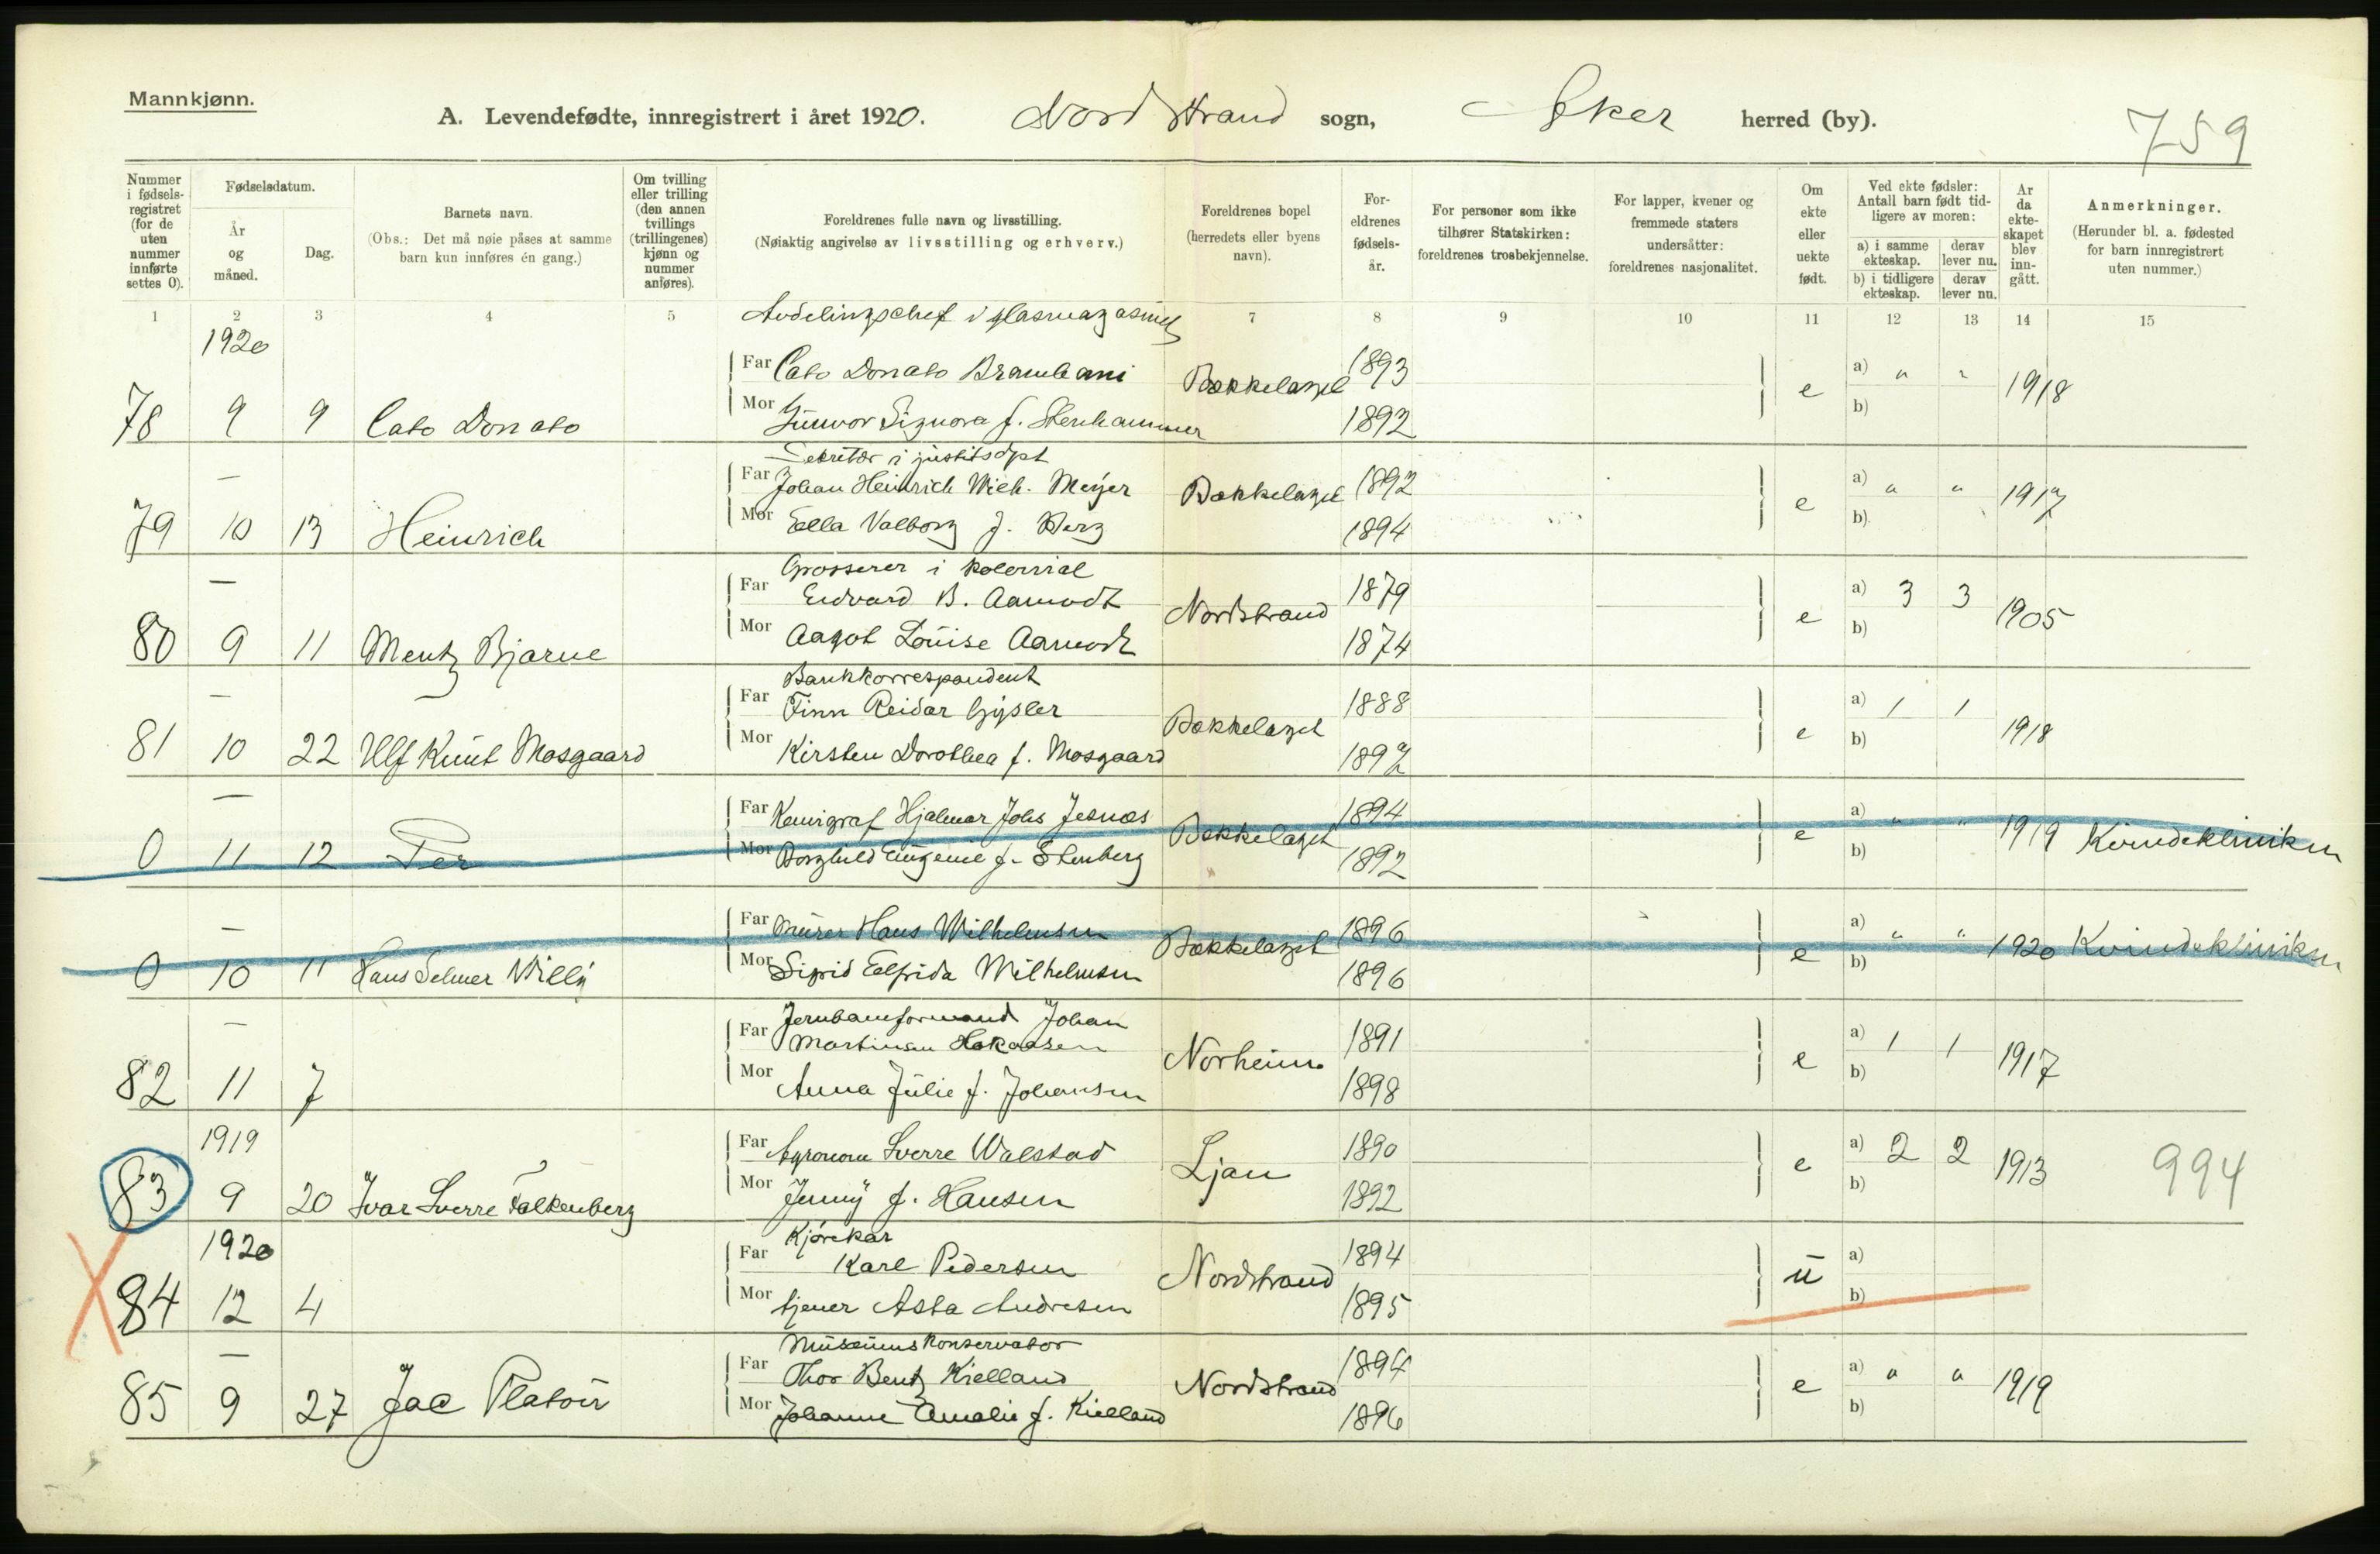 Mannkjønn.
A. Levendefødte, innregistrert i året 1920. Nordstrand sogn, Aker herred (by).
759
Nummer i fødsels-registret (for de uten nummer innførte settes 0).
Fødselsdatum.
År og måned.
Dag.
Barnets navn.
(Obs.: Det må nøie påses at samme barn kun innføres én gang.)
Om tvilling eller trilling (den annen tvillings (trillingenes) kjønn og nummer anføres).
Foreldrenes fulle navn og livsstilling.
(Nøiaktig angivelse av livsstilling og erhverv.)
Foreldrenes bopel (herredets eller byens navn).
For-eldrenes fødsels-år.
For personer som ikke tilhører Statskirken: foreldrenes trosbekjennelse.
For lapper, kvener og fremmede staters undersåtter: foreldrenes nasjonalitet.
Om ekte eller uekte født.
Ved ekte fødsler: Antall barn født tid-ligere av moren:
a) i samme ekteskap. derav lever nu.
b) i tidligere ekteskap. derav lever nu.
År da ekte-skapet blev inn-gått.
Anmerkninger.
(Herunder bl. a. fødested for barn innregistrert uten nummer.)
1 2 3 4 5 7 8 9 10 11 12 13 14 15
1920
Avdelingschef i glasmagasinet
Far Cato Donato Brambani Bækkelaget 1893 a) " "
78 9 9 Cato Donato Mor Gunvor Signora f. Stenhammer 1892 e b) 1918
— Sekretær i justitsdpt
Far Johan Heinrich Wich. Meyer Bækkelaget 1892 a) " "
79 10 13 Heinrich Mor Ella Valborg f. Berg 1894 e b) 1917
— Grosserer i kolonial
Far Edvard B. Aamodt Nordstrand 1879 a) 3 3
80 9 11 Mentz Bjarne Mor Aagot Louise Aamodt 1874 e b) 1905
— Bankkorrespondent
Far Finn Reidar Gysler Bækkelaget 1888 a) 1 1
81 10 22 Ulf Knut Mosgaard Mor Kirsten Dorothea f. Mosgaard 1897 e b) 1918
— Far Kemigraf Hjalmar Johs Jesnæs Bækkelaget 1894 a) " "
0 11 12 Per Mor Borghild Eugenie f. Stenberg 1892 e b) 1919 Kvindeklinikken
— Far Murer Hans Wilhelmsen Bækkelaget 1896 a) " "
0 10 11 Hans Selmer Willy Mor Sigrid Elfrida Wilhelmsen 1896 e b) 1920 Kvindeklinikken
— Jernbaneformand Johan
Far Martinsen Hokaasen Norheim 1891 a) 1 1
82 11 7 Mor Anna Julie f. Johansen 1898 e b) 1917
1919 Far Agronom Sverre Walstad Ljan 1890 a) 2 2
83 9 20 Ivar Sverre Falkenberg Mor Jenny f. Hansen 1892 e b) 1913 994
1920 Kjørekar
Far Karl Pedersen Nordstrand 1894 a)
84 12 4 Mor tjener Asta Andresen 1895 u b)
— Museumskonservator
Far Thor Bentz Kielland Nordstrand 1894 a) " "
85 9 27 Jac Platoŭ Mor Johanne Amalie f. Kielland 1896 e b) 1919